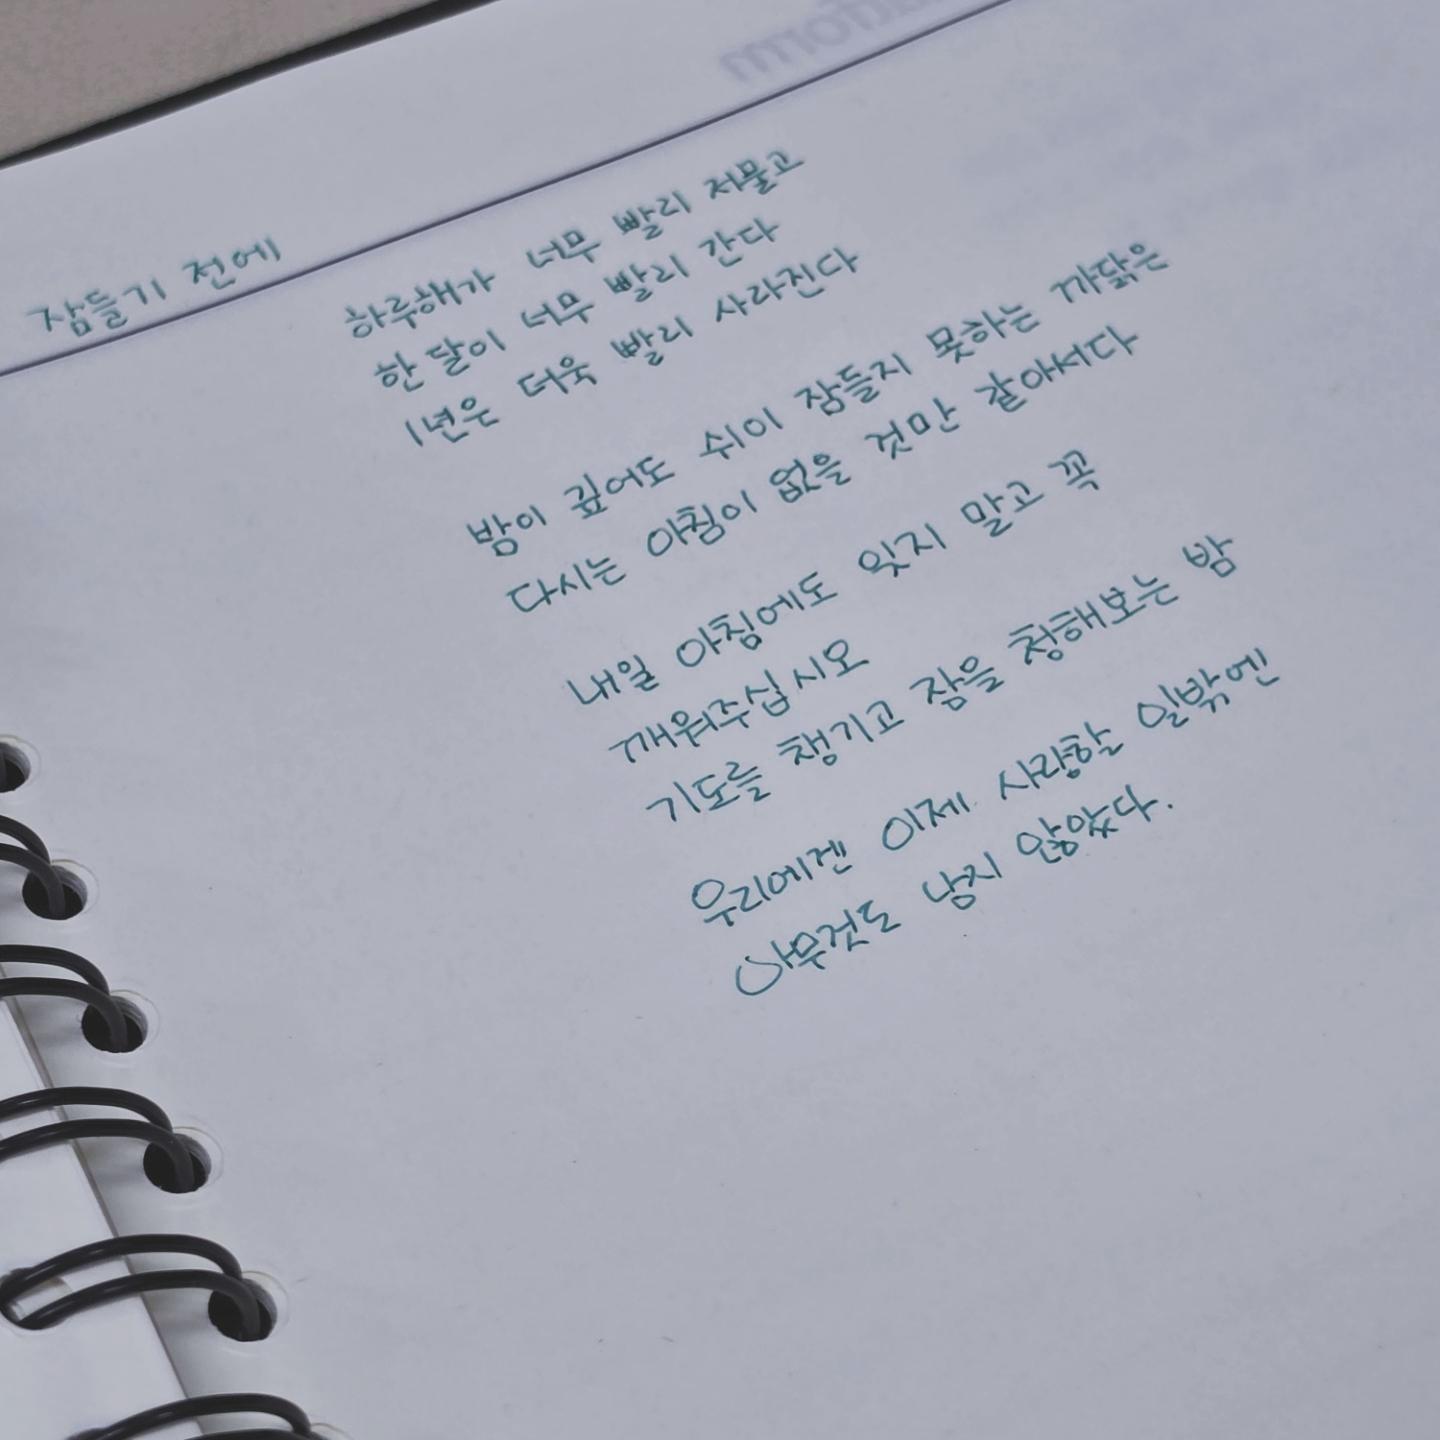 잠들기 전에
하루해가 너무 빨리 저물고
한 달이 너무 빨리 간다
1년은 더욱 빨리 사라진다
밤이 깊어도 쉬이 잠들지 못하는 까닭은
다시는 아침이 없을 것만 같아서다
내일 아침에도 잊지 말고 꼭
깨워주십시오
기도를 챙기고 잠을 청해보는 밤
우리에겐 이제 사랑할 일밖엔
아무것도 남지 않았다.